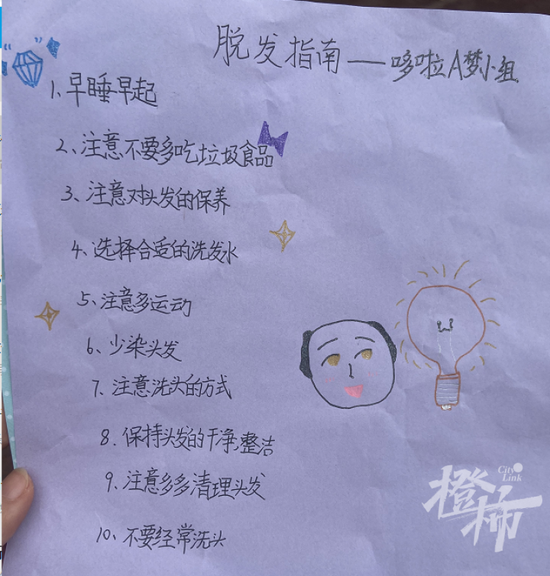 脱发指南——哆啦A梦小组
1、早睡早起
2、注意不要多吃垃圾食品
3、注意对头发的保养
4、选择合适的洗发水
5、注意多运动
6、少染头发
7、注意洗头的方式
8、保持头发的干净,整洁
9、注意多多清理头发
10、不要经常洗头
City Link
橙柿